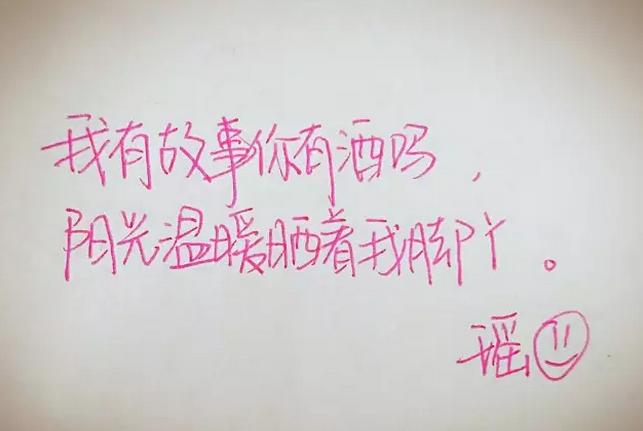 我有故事你有酒吗，
阳光温暖晒着我脚丫。
瑶